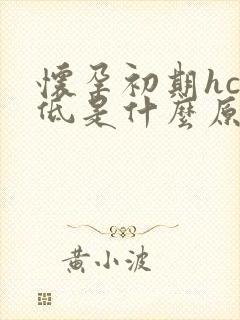 懷孕初期hc
低是什麼原
黃小波